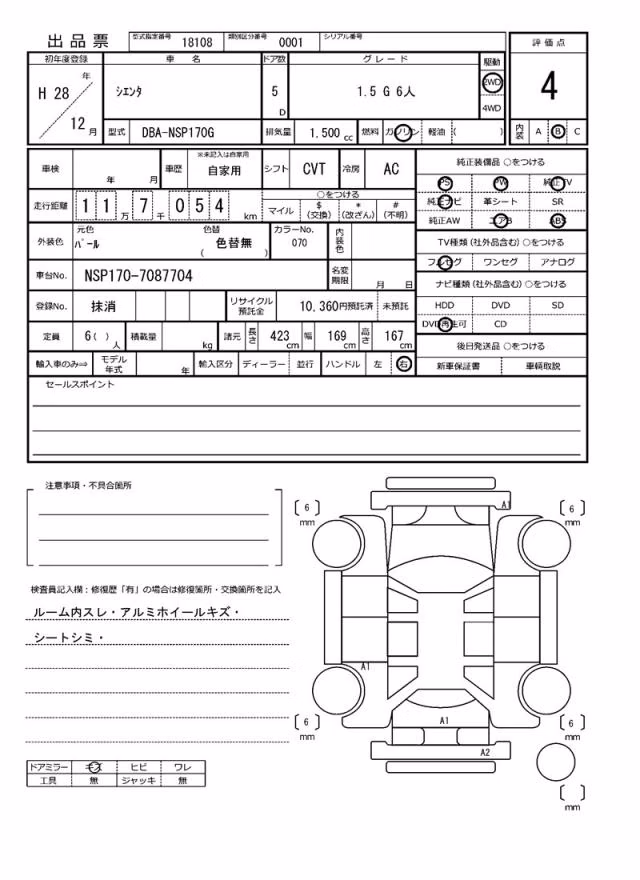 出品票 型式指定番号 18108 類別区分番号 0001 シリアル番号
評価点
4
内装 A B C
初年度登録 車名 ドア数 グレード 駆動
H 28 年 12 月 シエンタ 5 D 1.5 G 6人 2WD 4WD
型式 DBA-NSP170G 排気量 1.500 cc 燃料 ガソリン 軽油 ( )
車検 年 月 車歴 ※未記入は自家用 自家用 シフト CVT 冷房 AC
走行距離 1 1 万 7 千 0 5 4 km ○をつける
マイル $(交換) *(改ざん) #(不明)
外装色 元色 パール 色替 ( 色替無 ) カラーNo. 070 内装色
車台No. NSP170-7087704 名変期限 月 日
登録No. 抹消 リサイクル預託金 10.360円預託済 未預託
定員 6( )人 積載量 kg 諸元 長さ 423 cm 幅 169 cm 高さ 167 cm
輸入車のみ⇒ モデル年式 年 輸入区分 ディーラー 並行 ハンドル 左 右
純正装備品 ○をつける
PS PW 純正TV
純正ナビ 革シート SR
純正AW エアB ABS
TV種類(社外品含む)○をつける
フルセグ ワンセグ アナログ
ナビ種類(社外品含む)○をつける
HDD DVD SD
DVD再生可 CD
後日発送品 ○をつける
新車保証書 車輌取説
セールスポイント
注意事項・不具合箇所
検査員記入欄:修復歴「有」の場合は修復箇所・交換箇所を記入
ルーム内スレ・アルミホイールキズ・
シートシミ・
ドアミラー キズ ヒビ ワレ
工具 無 ジャッキ 無
[ 6 ] mm
A1
[ 6 ] mm
A1
[ 6 ] mm
A1
A2
[ 6 ] mm
[ ] mm